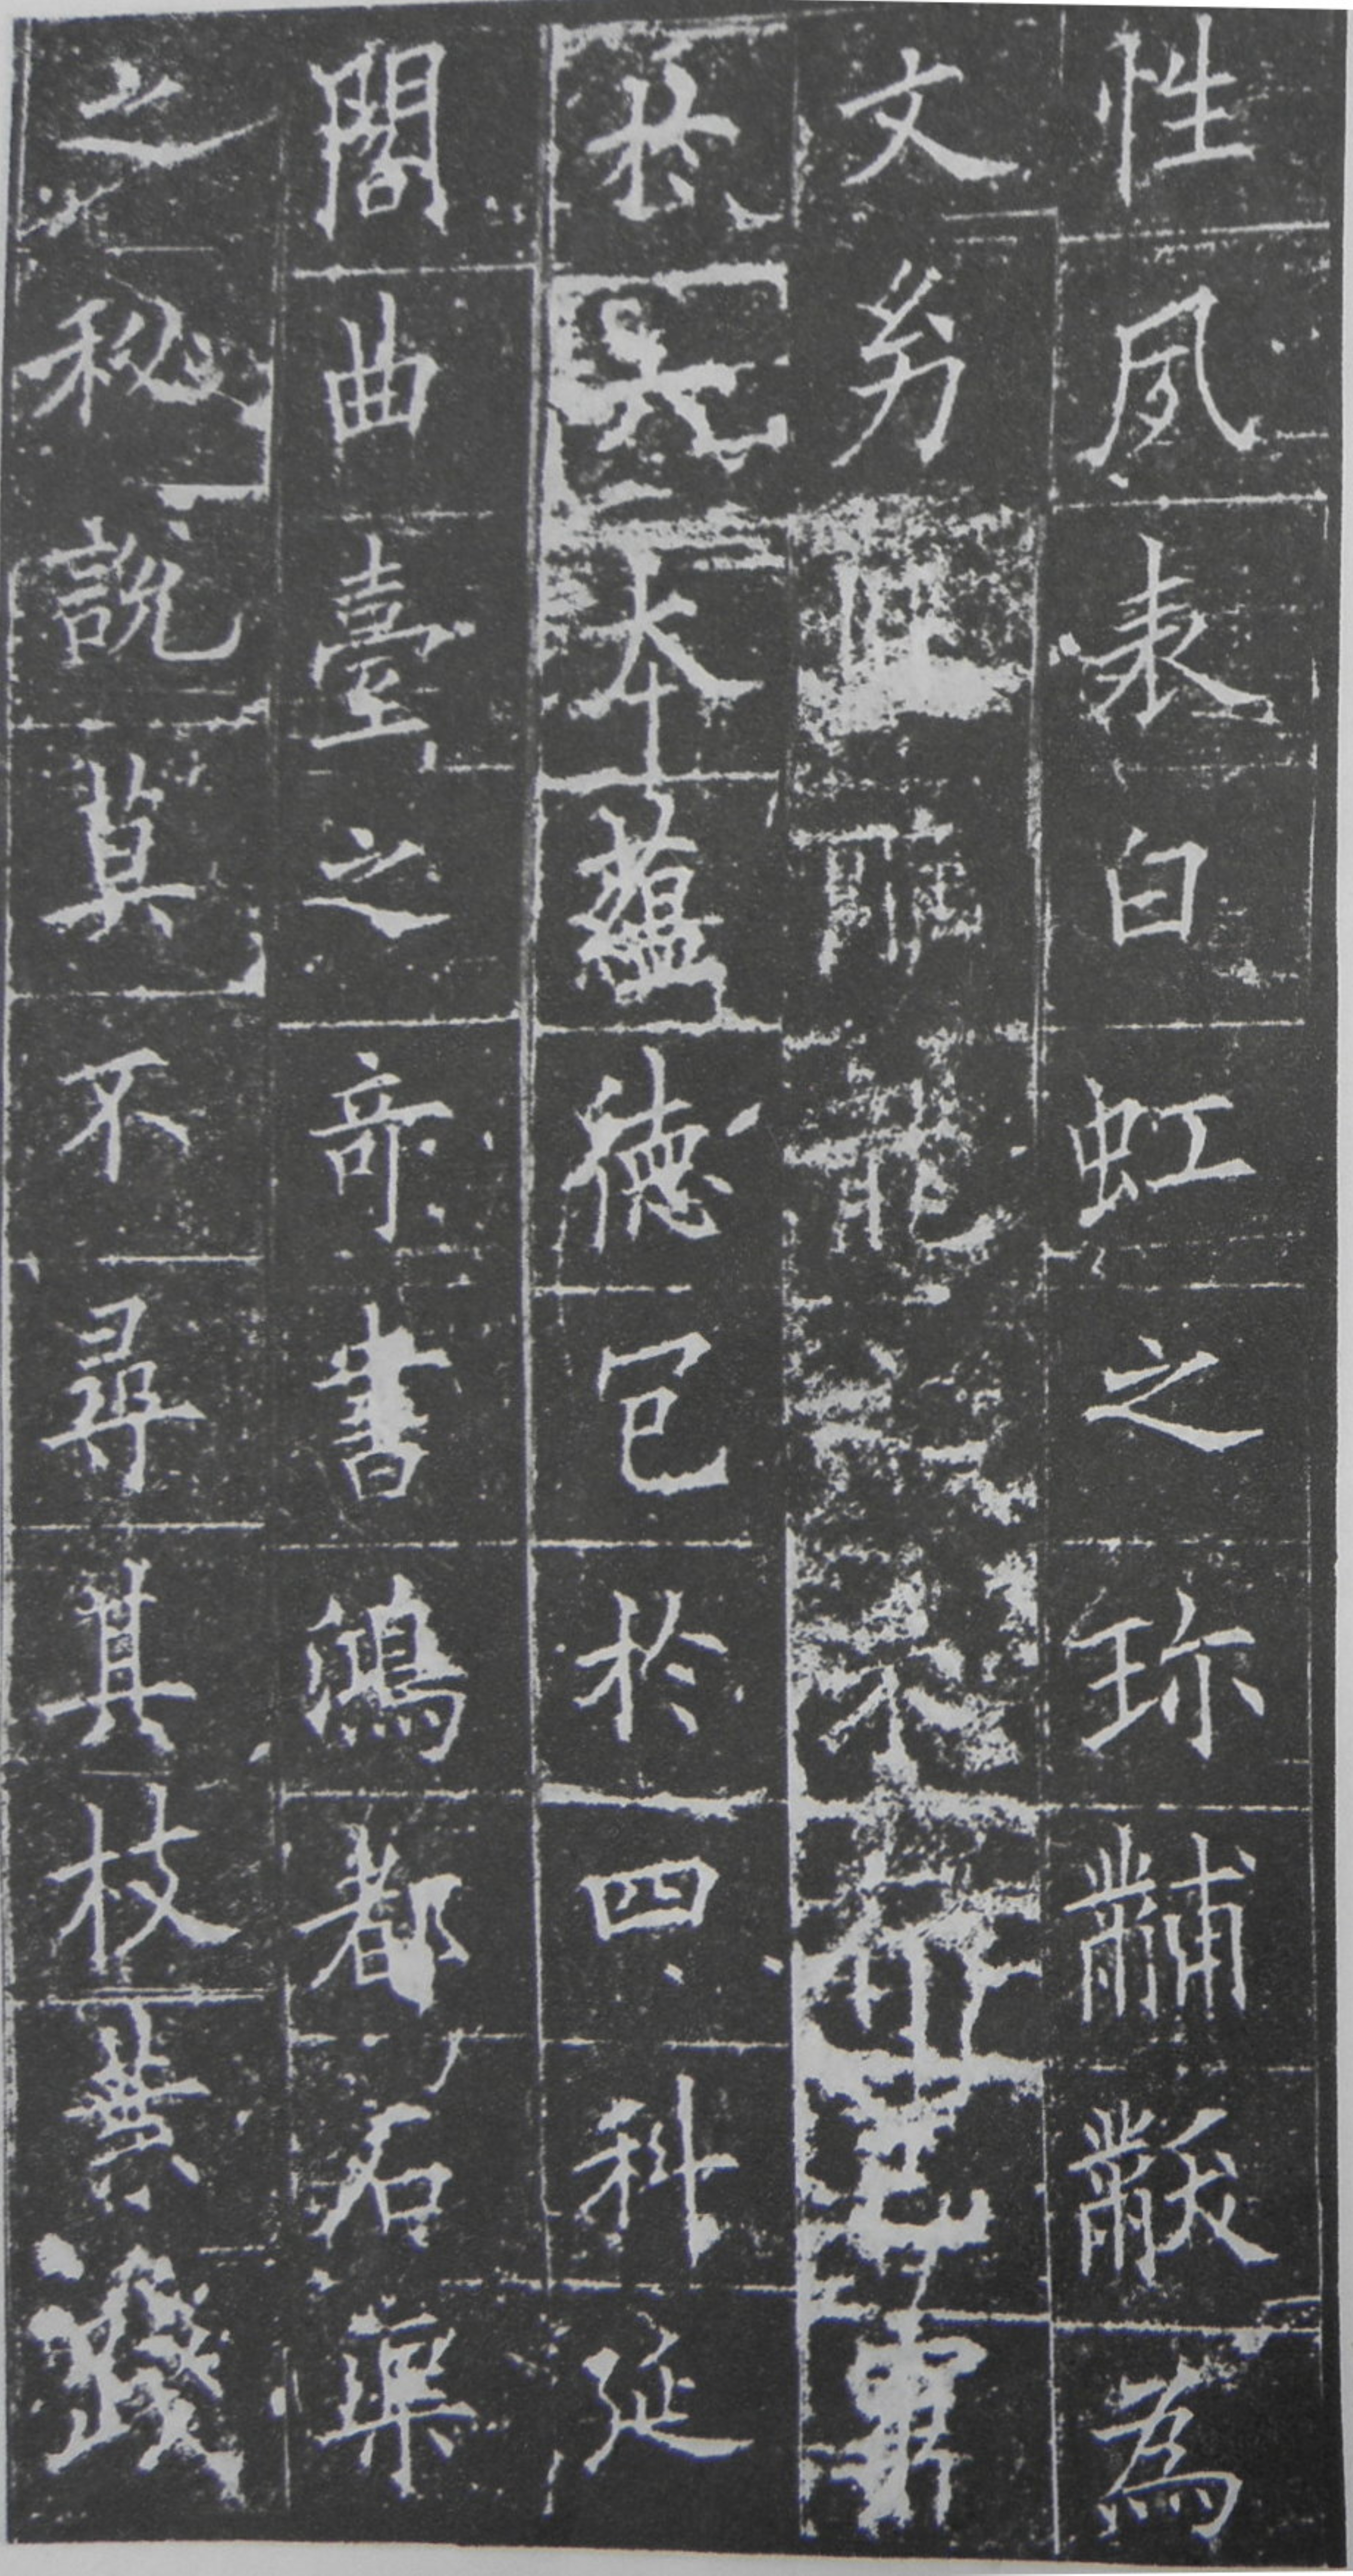 性夙表白虹之珍黼黻為
文幼雕龍
於六本蘊德冠於四科延
閣曲臺之奇書鴻都石渠
之秘說莫不尋其枝葉踐